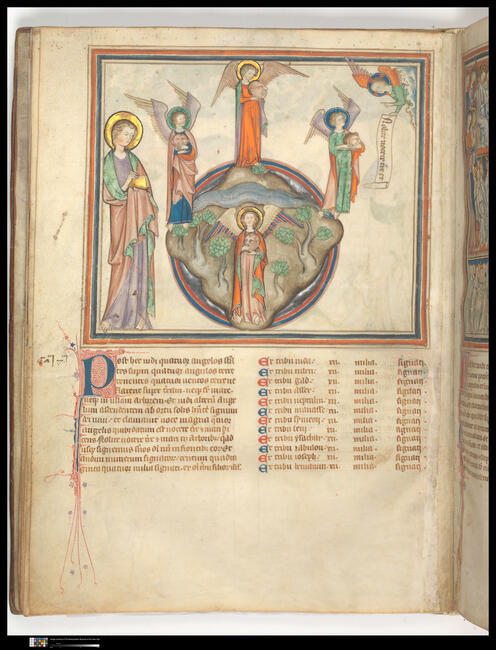 Nolite nocere t̄re et
Post hec uidi quatuor angelos stā
tes supra quatuor angulos terre
tenentes quatuor uentos terre ne
flarent super terram neqꝫ sr̄ mare
neqꝫ in ullam arborem. Et uidi alterū ange
lum ascendentem ab ortu solis hn̄tē signum
dei uiui. et clamauit uoce magna quatuor
angelis quibus datum est nocere tr̄e ⁊ mari di
cens Nolite nocere tr̄e ⁊ mari neqꝫ arboribꝫ quo
usqꝫ signemus seruos dei nr̄i in frontibꝫ eorꝫ. Et
audiui numerum signatorꝫ centum quadra
ginta quatuor milia signati. ex oī tribu filiorꝫ isrl̄.
Ex tribu iuda. xii. milia. signati.
Ex tribu ruben. xii. milia. signati.
Ex tribu gad. xii. milia. signati.
Ex tribu asser. xii. milia. signati.
Ex tribu neptalim. xii. milia. signati.
Ex tribu manasse. xii. milia. signati.
Ex tribu symeon. xii. milia. signati.
Ex tribu leui. xii. milia. signati.
Ex tribu ysachar. xii. milia. signati.
Ex tribu zabulon. xii. milia. signati.
Ex tribu ioseph. xii. milia. signati.
Ex tribu beniamin. xii. milia. signati.